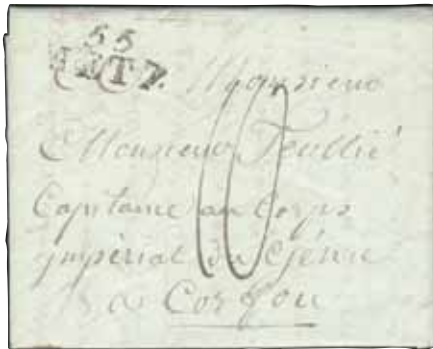 55
METZ.
Monsieur
Monsieur Feullié
Capitaine au Corps
impérial du Génie
a Corfou
10